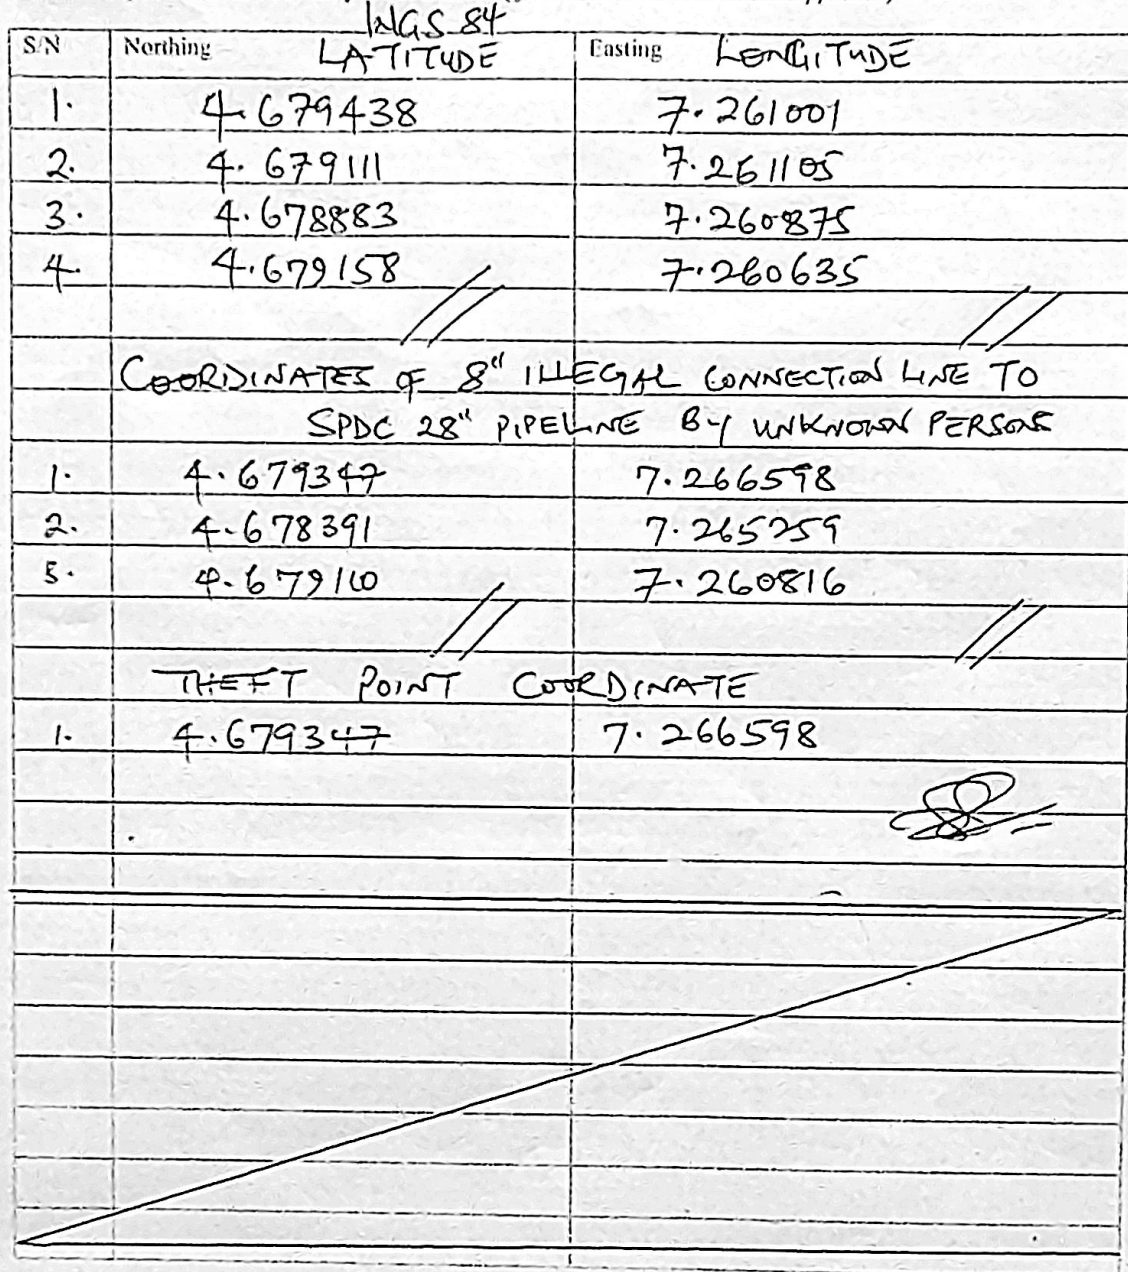 WGS 84
S/N Northing LATITUDE Easting LONGITUDE
1. 4.679438 7.261001
2. 4.679111 7.261105
3. 4.678883 7.260875
4. 4.679158 7.260635
COORDINATES OF 8" ILLEGAL CONNECTION LINE TO
SPDC 28" PIPELINE BY UNKNOWN PERSONS
1. 4.679347 7.266598
2. 4.678391 7.265259
3. 4.679110 7.260816
THEFT POINT COORDINATE
1. 4.679347 7.266598